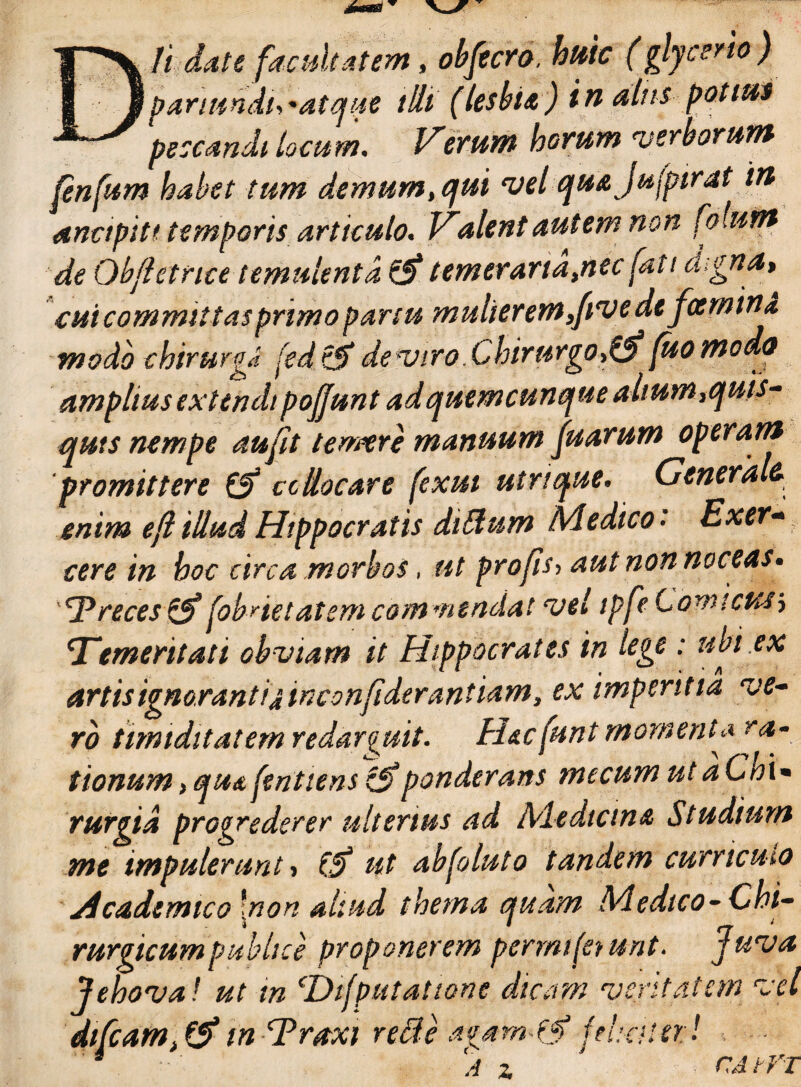 DIi date facultatem, obſecro, huic (glycerio)
pariundi, atque illi (lesbiæ) in alns potius
peccandi locum. Verum horum verborum
ſenſum habet tum demum, qui vel quæ Juſpirat in
ancipiti temporis articulo. Valent autem non ſolum
de Obſtetrice temulentâ & temerariâ, nec ſati digna,
cui committas primo partu mulierem, ſive de fœminâ
modò chirurgâ ſed & de viro Chirurgo, & ſuo modo
amplius extendi poſſunt ad quemcunque alium, quis-
quis nempe auſit temerè manuum ſuarum operam
promittere & collocare ſexui utrique. Generale
enim eſt illud Hippocratis dictum Medico: Exer-
cere in hoc circa morbos, ut proſis, aut non noceas.
Preces & ſobrietatem commendat vel ipſe Comicus;
Temeritati obviam it Hippocrates in lege: ubi ex
artis ignorantiâ inconſiderantiam, ex imperitiâ ve-
rò timiditatem redarguit. Hæc ſunt momenta ra-
tionum, quæ ſentiens & ponderans mecum ut à Chi-
rurgiâ progrederer ulterius ad Medicinæ Studium
me impulerunt, & ut abſoluto tandem curriculo
Academico non aliud thema quàm Medico-Chi-
rurgicum publicè proponerem permiſerunt. Juva
Jehova! ut in Diſputatione dicam veritatem vel
diſcam, & in Praxi rectè agam & feliciter!
A 2 CAPVT